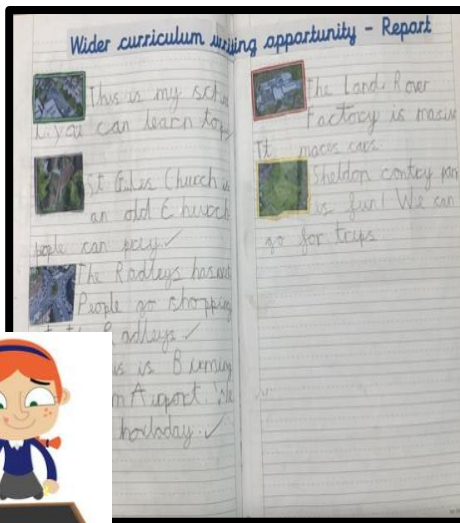 Wider curriculum writing opportunity - Report
This is my scho
l. you can learn to
St Giles Church is
an old Church
pople can pray.
The Radleys has
People go shopping
Radleys.
is is Birming
m Airport. We
horladay.
The Land Rover
Factory is masive
It maces cars
Sheldon contry par
is fun! We can
go for trips